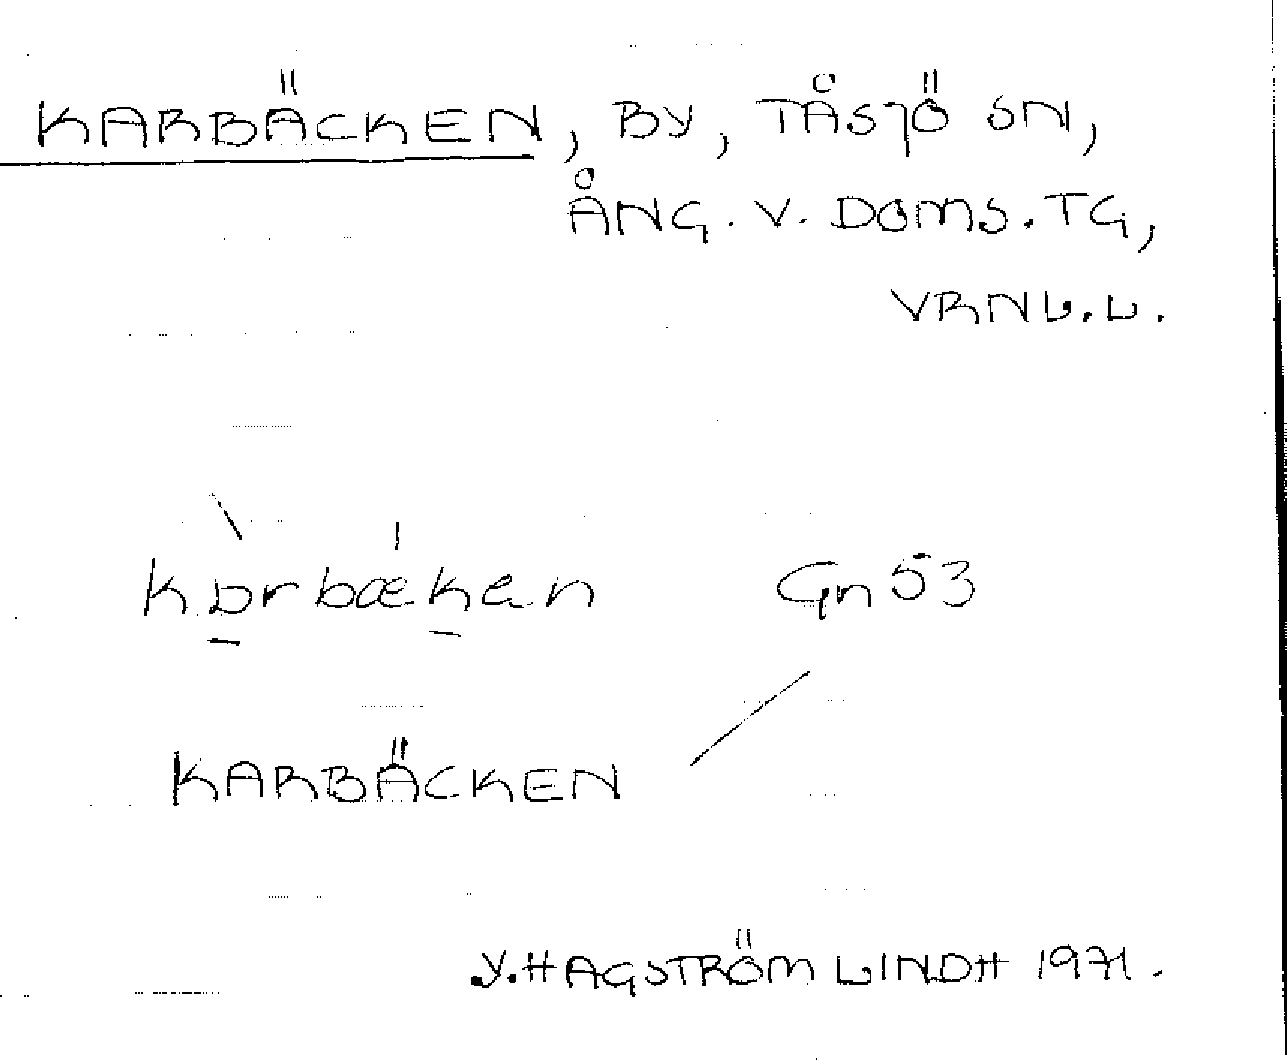 KARBÄCKEN, BY, TÅSJÖ SN,
ÅNG. V. DOMS. TG,
VRNL. L.
kɒrbækən Gn 53
KARBÄCKEN /
Y. HAGSTRÖM LINDH 1971.